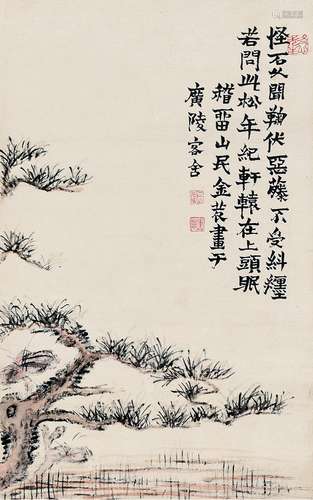 怪石久聞鞠伏惡藤不受糾纏
若問此松年紀軒轅在上頭眠
稽畱山民金農畫于
廣陵客舍